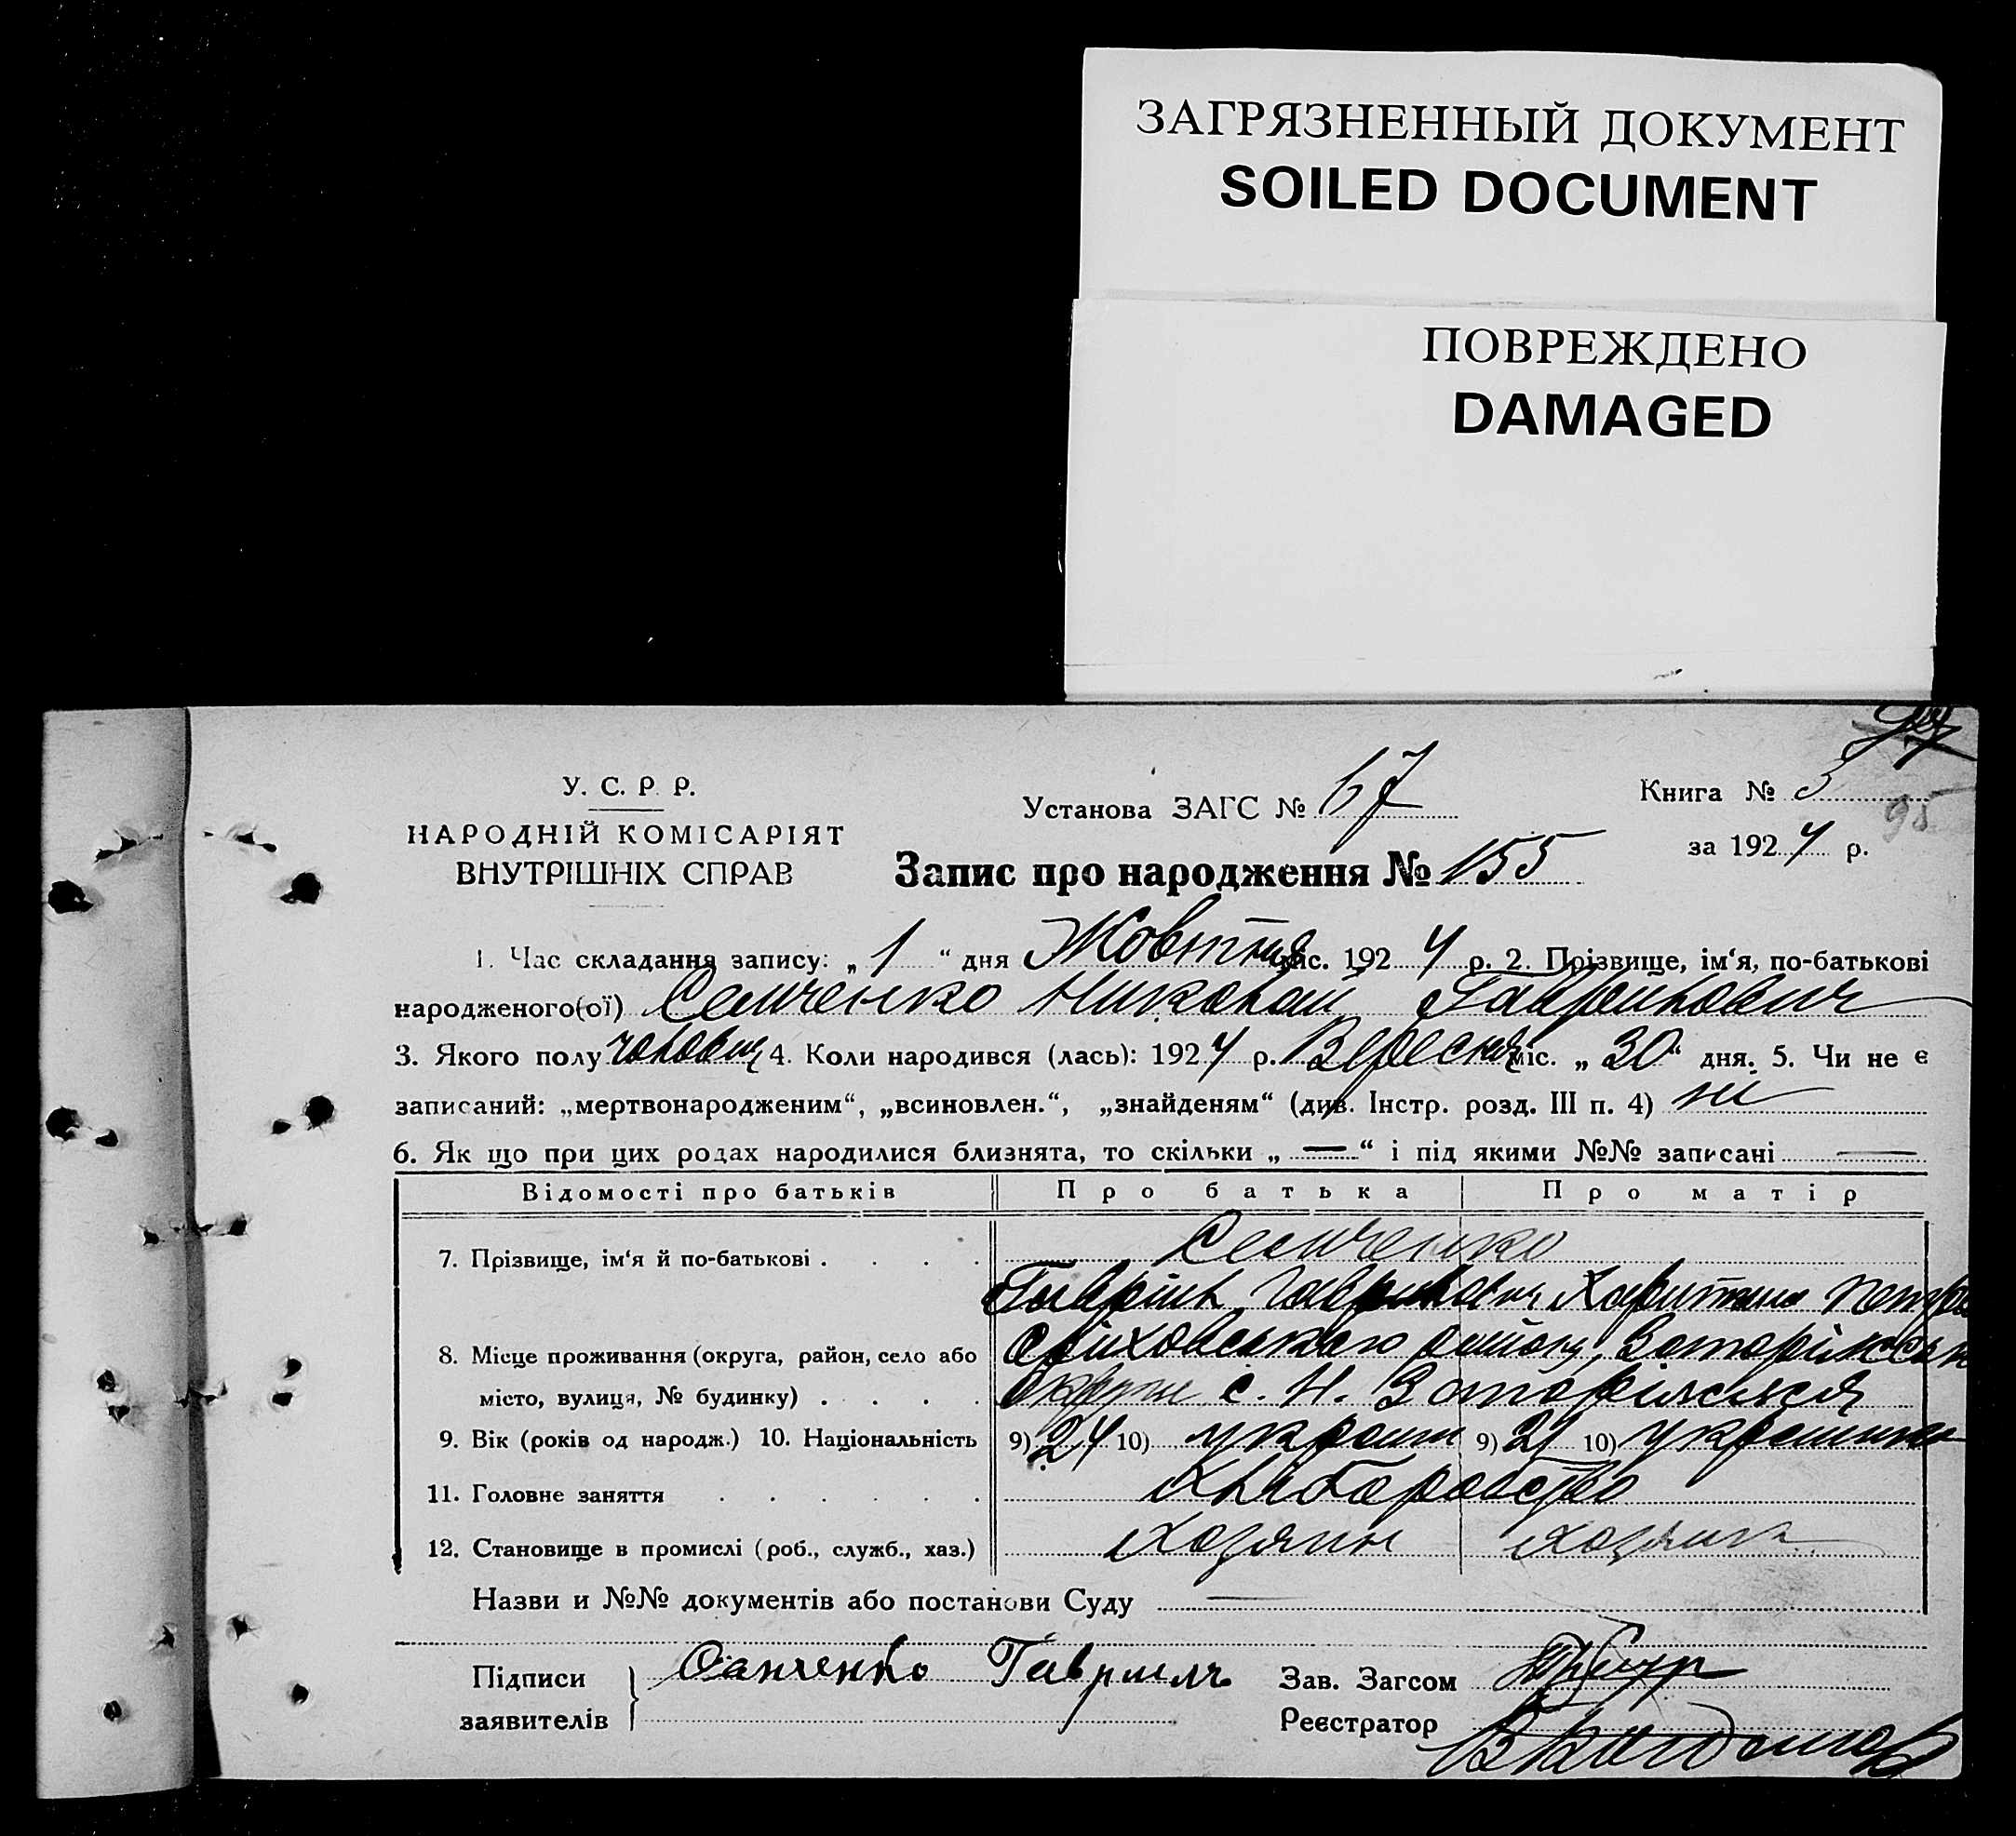 ЗАГРЯЗНЕННЫЙ ДОКУМЕНТ
SOILED DOCUMENT
ПОВРЕЖДЕНО
DAMAGED
У. С. Р. Р.
НАРОДНІЙ КОМІСАРІЯТ
ВНУТРІШНІХ СПРАВ
Установа ЗАГС № 67
Книга № 3
95
за 1924 р.
Запис про народження № 155
1. Час складання запису: „ 1 “ дня Жовтня міс. 1924 р. 2. Прізвище, ім‘я, по-батькові
народженого(ої) Семченко Николай Гаврилович
3. Якого полу чоловіч 4. Коли народився (лась): 1924 р. Вересня міс. „ 30 “ дня. 5. Чи не є
записаний: „мертвонародженим“, „всиновлен.“, „знайденям“ (див. Інстр. розд. III п. 4) ні
6. Як що при цих родах народилися близнята, то скільки „ — “ і під якими №№ записані —
Відомості про батьків Про батька Про матір
7. Прізвище, ім‘я й по-батькові . . . . Семченко
Гавріил Гаврилович Харитина
8. Місце проживання (округа, район, село або Оріховського району,
місто, вулиця, № будинку) . . . . Округи с. Н.
9. Вік (років од народж.) 10. Національність 9) 24 10) україн 9) 21 10) украинка
11. Головне заняття . . . . . . Хліборобство
12. Становище в промислі (роб., служб., хаз.) Хозяин хозяйка
Назви и №№ документів або постанови Суду —
Підписи Гаврилъ Зав. Загсом
заявителів Реєстратор